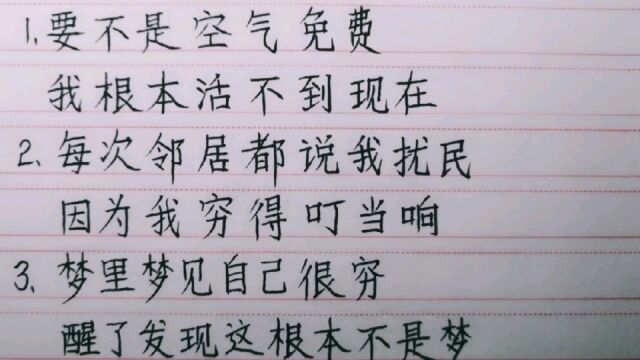 1.要不是空气免费
我根本活不到现在
2、每次邻居都说我扰民
因为我穷得叮当响
3、梦里梦见自己很穷
醒了发现这根本不是梦